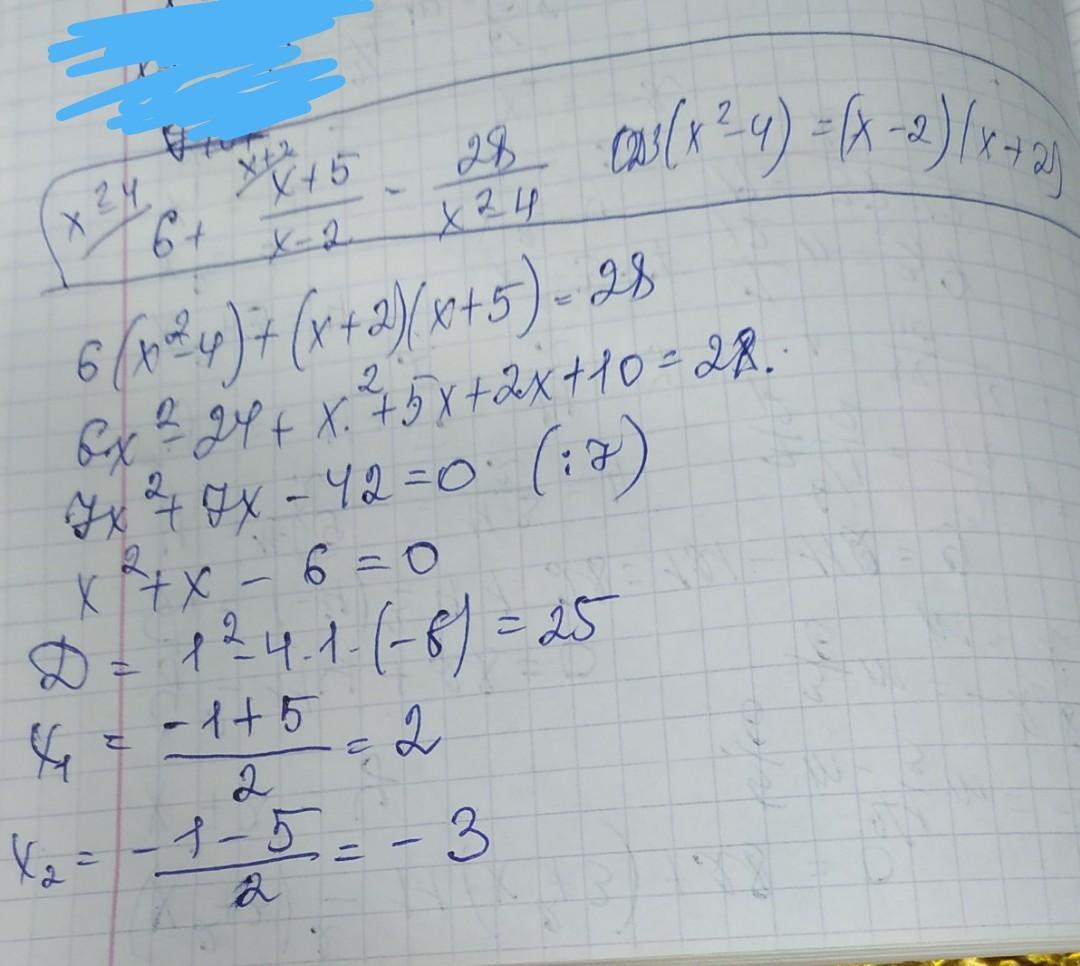 x²-4 6+ x+2 (x+5)/(x-2) - 28/(x²-4) (x²-4) =(x-2)(x+2)
6(x²-4)+(x+2)(x+5)=28
6x²-24+x²+5x+2x+10=28.
7x²+7x-42=0 (:7)
x²+x-6=0
D= 1²-4·1·(-6)=25
x₁ = (-1+5)/2 = 2
x₂ = (-1-5)/2 = -3